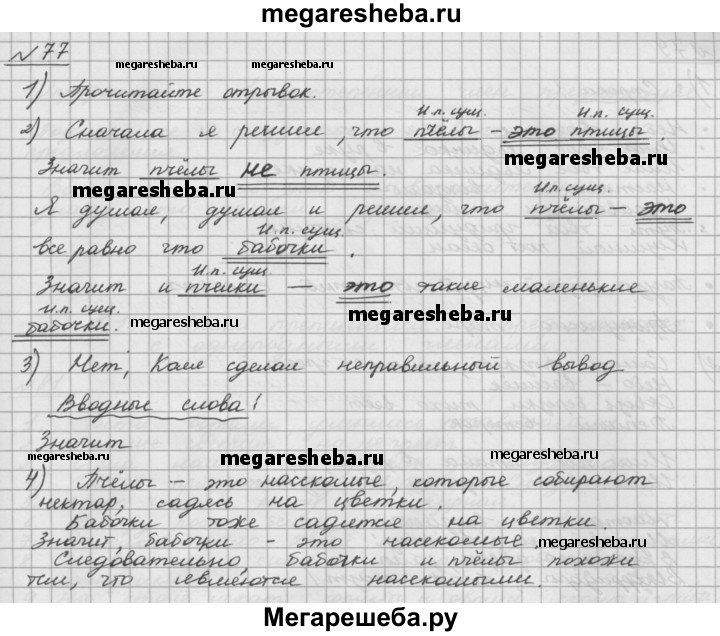 megaresheba.ru
№77
megaresheba.ru
megaresheba.ru
1) Прочитайте отрывок.
И.п. сущ. И.п. сущ.
2) Сначала я решил, что пчёлы – это птицы.
megaresheba.ru
Значит пчёлы не птицы.
megaresheba.ru
И.п. сущ.
Я думал, думал и решил, что пчёлы – это
И.п. сущ.
все равно что бабочки.
И.п. сущ.
Значит и пчелки — это такие маленькие
И.п. сущ.
бабочки. megaresheba.ru megaresheba.ru
3) Нет, Коля сделал неправильный вывод
Вводные слова!
Значит
megaresheba.ru megaresheba.ru megaresheba.ru
4) Пчёлы – это насекомые, которые собирают
нектар, садясь на цветки.
Бабочки тоже садятся на цветки.
Значит, бабочки – это насекомые.
megaresheba.ru
Следовательно, бабочки и пчёлы похожи
тем, что являются насекомыми.
Мегарешеба.ру